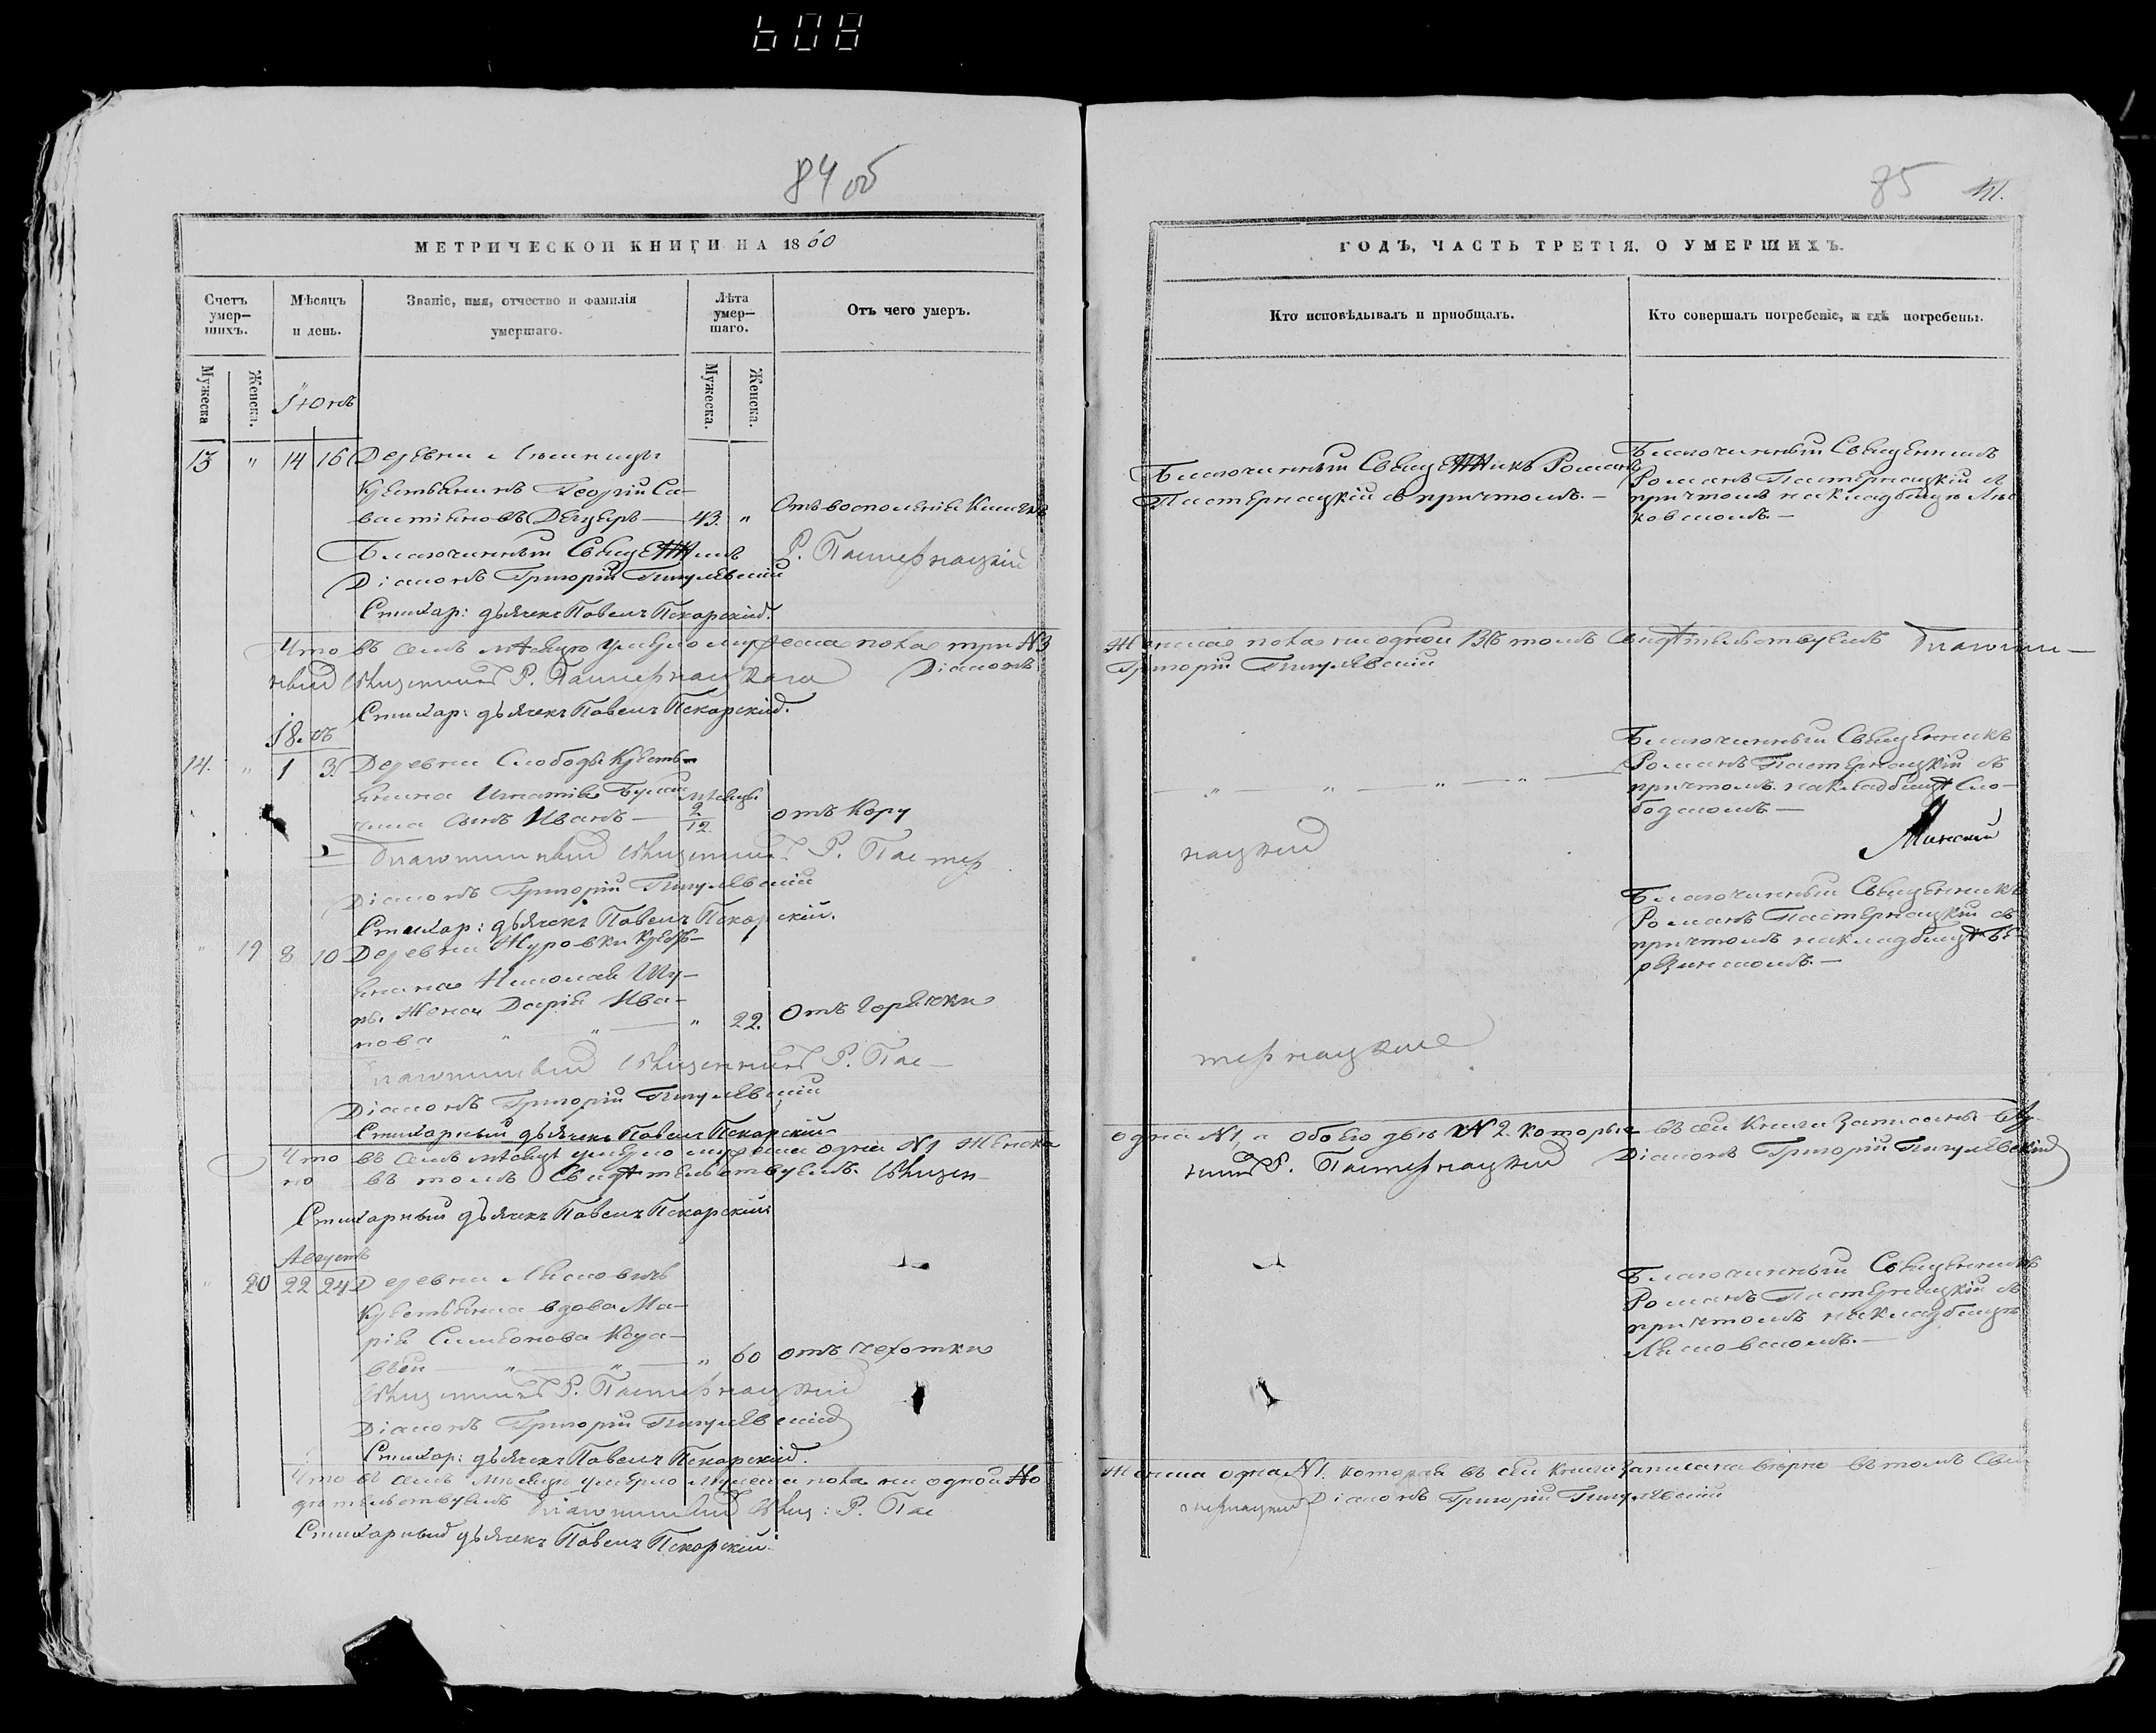 84 об
МЕТРИЧЕСКОЙ КНИГИ НА 1860
Счетъ умер-
шихъ.
Мѣсяцъ
и день.
Званіе, имя, отчество и фамилія
умершаго.
Лѣта
умер-
шаго.
Отъ чего умеръ.
Мужеска
Женска.
Мужеска.
Женска.
Іюнь
13 " 14 16 Деревни
Крестьянинъ Георгій Са-
вастіановъ 43. "
Отъ воспаленія
Благочинный Священникъ Р. Пастернацкій
Діаконъ Григорій Пигулевскій
Стихар: дьячекъ Павелъ Пекарскій.
Что въ семъ мѣсяцѣ умерло мужеска пола три №3
ный Священникъ Р. Пастернацкій Діаконъ
Стихар: дьячекъ Павелъ Пекарскій.
14. " 1 3. Деревни Слободы Кресть-
янина Игнатія мѣсяцы
сынъ Иванъ — 2/12 отъ Кору
Благочинный Священникъ Р. Пастер
Діаконъ Григорій Пигулевскій
Стихар: дьячекъ Павелъ Пекарскій.
" 19 8 10 Деревни Журовки Кресть-
янина Николая Шу-
жена Дарія Ива-
нова " 22. Отъ Горячки
Благочинный Священникъ Р. Пас-
Діаконъ Григорій Пигулевскій
Стихарный дьячекъ Павелъ Пекарскій
Что въ семъ мѣсяцѣ умерло мужеска одна №1 Женска
но въ томъ Свидѣтельствуемъ. Священ-
Стихарный дьячекъ Павелъ Пекарскій
Августъ
" 20 22 24 Деревни Лясковичъ
Крестьянка вдова Ма-
рія Симеонова
" 60 отъ чехотки
Священникъ Р. Пастернацкій
Діаконъ Григорій Пигулевскій
Стихар: дьячекъ Павелъ Пекарскій.
Что въ семъ мѣсяцѣ умерло мужеска пола ни одной Но
дѣтельствуемъ Благочинный Свящ: Р. Пас
Стихарный дьячекъ Павелъ Пекарскій
85
ГОДЪ, ЧАСТЬ ТРЕТІЯ. О УМЕРШИХЪ.
Кто исповѣдывалъ и пріобщалъ.
Кто совершалъ погребеніе, и гдѣ погребены.
Благочинный Священникъ Романъ
Пастернацкій съ причтомъ. —
Благочинный Священникъ
Романъ Пастернацкій съ
причтомъ на кладбищѣ
Женска пола ни одной Въ томъ Свидѣтельствуемъ Благочин-
Григорій Пигулевскій
Благочинный Священникъ
Романъ Пастернацкій съ
причтомъ. на кладбищѣ Сло-
бодскомъ —
нацкій
Благочинный Священникъ
Романъ Пастернацкій съ
причтомъ на кладбищѣ Бе-
резинскомъ. —
тернацкій
одна №1, а обоего двѣ №2. которые въ сей Книги Записаны
никъ Р. Пастернацкій Діаконъ Григорій Пигулевскій
Благочинный Священникъ
Романъ Пастернацкій съ
причтомъ на кладбищѣ
Лясковскомъ. —
Женска одна №1. которая въ сей Книги Записана вѣрно въ томъ Сви
тернацкій Діаконъ Григорій Пигулевскій